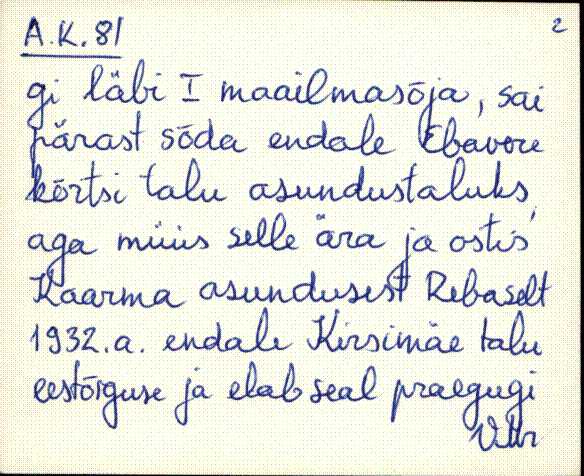 A.K. 81 2
gi läbi I maailmasõja, sai
pärast sõda endale Ebavere
kõrtsi talu asundustaluks,
aga müüs selle ära ja ostis
Kaarma asundusest Rebaselt
1932.a. endale Kirsimäe talu
eestõiguse ja elab seal praegugi